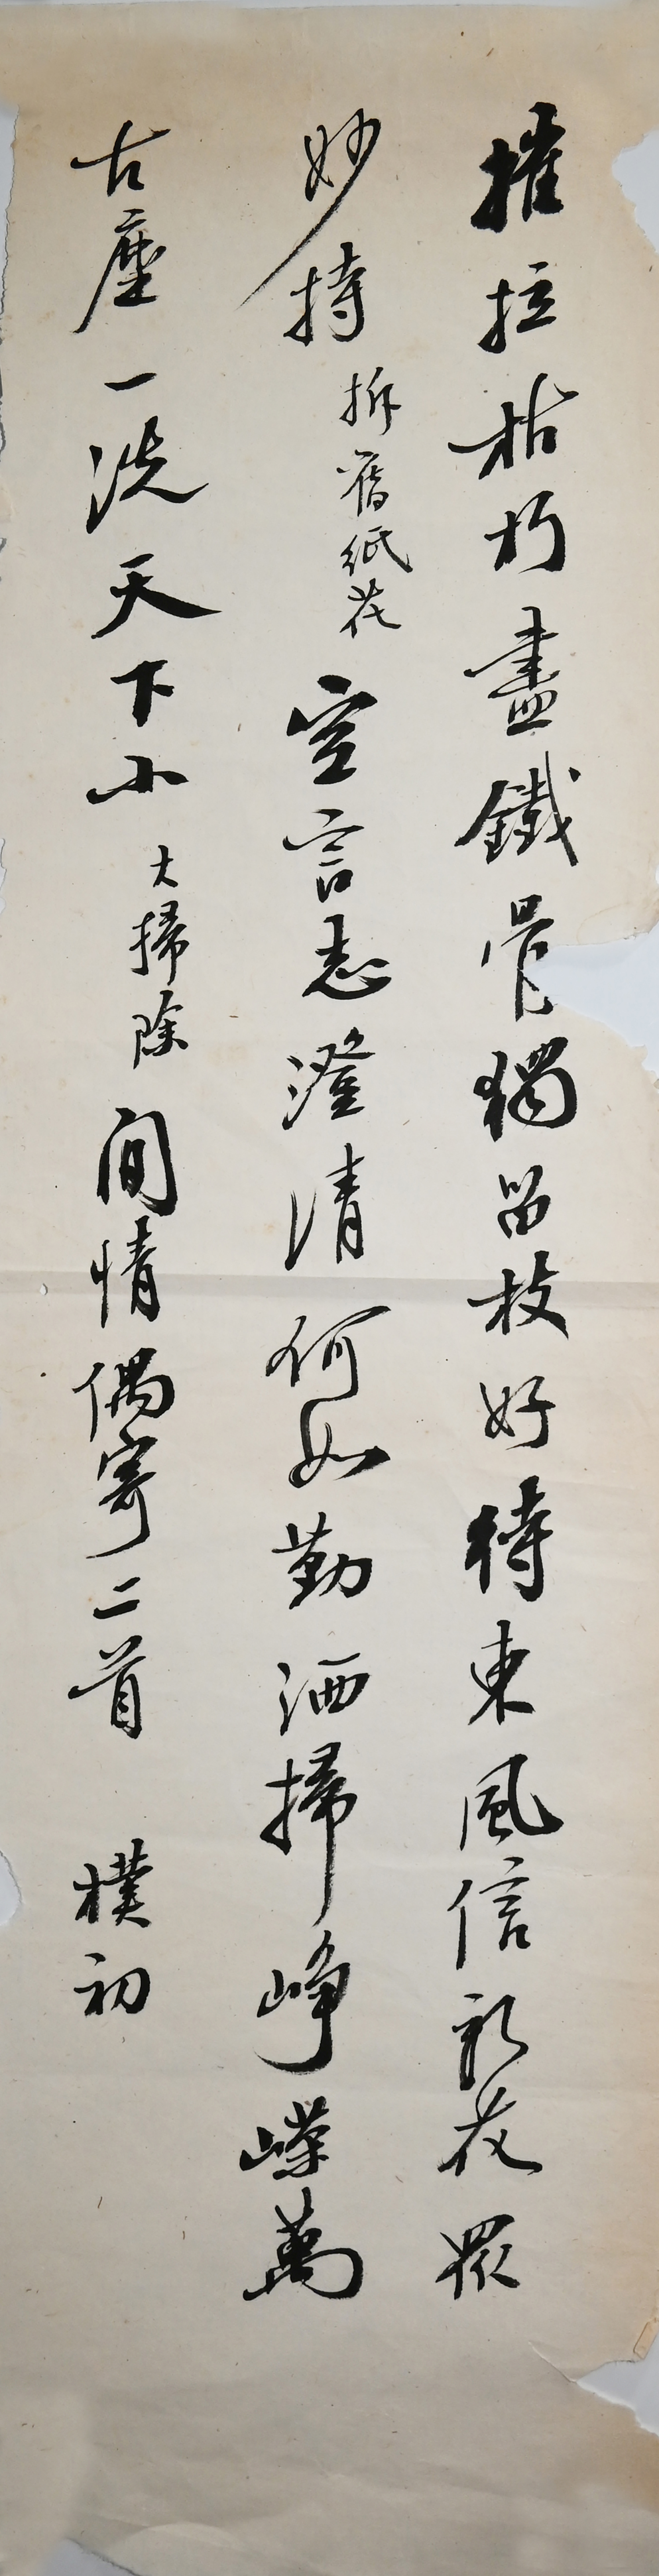 摧拉枯朽盡鐵骨獨留枝好待東風信報花眾
妙持拆舊紙花空言志澄清何如勤洒掃崢嶸萬
古塵一洗天下小大掃除閒情偶寄二首樸初